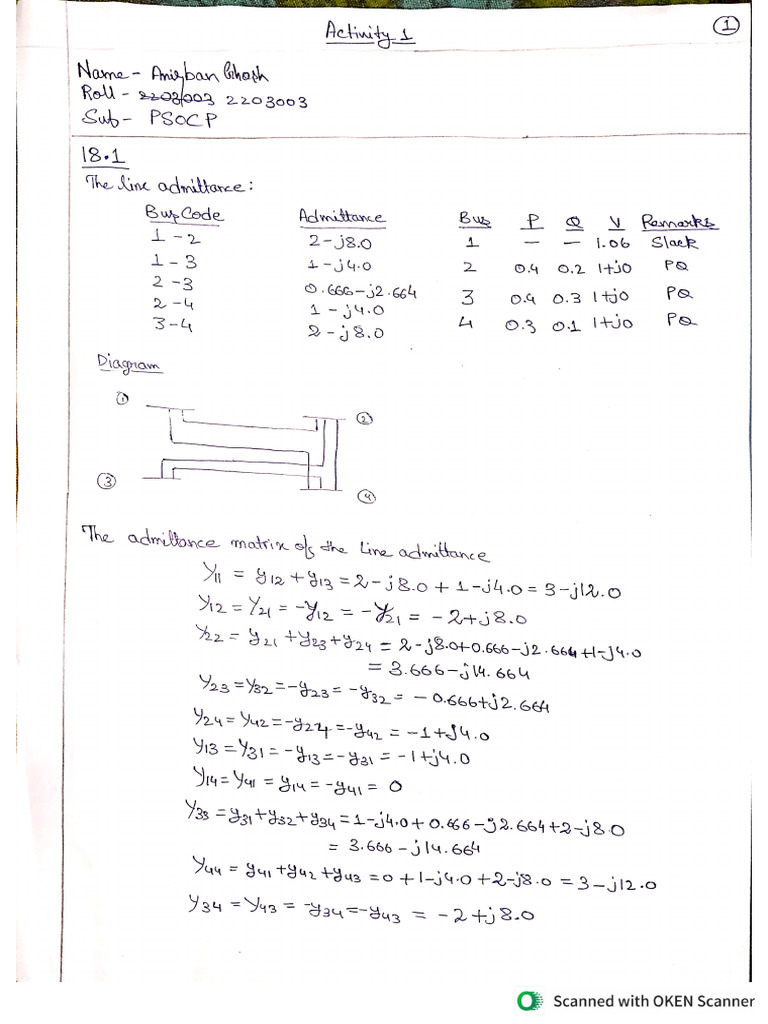 Activity 1
1
Name - Anirban Ghosh
Roll - 2203003 2203003
Sub - PSOCP
18.1
The line admittance:
Bus Code Admittance Bus P Q V Remarks
1-2 2-j8.0 1 — — 1.06 Slack
1-3 1-j4.0 2 0.4 0.2 1+j0 PQ
2-3 0.666-j2.664 3 0.4 0.3 1+j0 PQ
2-4 1-j4.0 4 0.3 0.1 1+j0 PQ
3-4 2-j8.0
Diagram
1
2
3
4
The admittance matrix of the line admittance
Y11 = y12 + y13 = 2-j8.0 + 1-j4.0 = 3-j12.0
Y12 = Y21 = -y12 = -y21 = -2+j8.0
Y22 = y21 + y23 + y24 = 2-j8.0+0.666-j2.664+1-j4.0
= 3.666-j14.664
Y23 = Y32 = -y23 = -y32 = -0.666+j2.664
Y24 = Y42 = -y24 = -y42 = -1+j4.0
Y13 = Y31 = -y13 = -y31 = -1+j4.0
Y14 = Y41 = y14 = -y41 = 0
Y33 = y31 + y32 + y34 = 1-j4.0 + 0.666-j2.664+2-j8.0
= 3.666-j14.664
Y44 = y41 + y42 + y43 = 0+1-j4.0+2-j8.0 = 3-j12.0
Y34 = Y43 = -y34 = -y43 = -2+j8.0
Scanned with OKEN Scanner